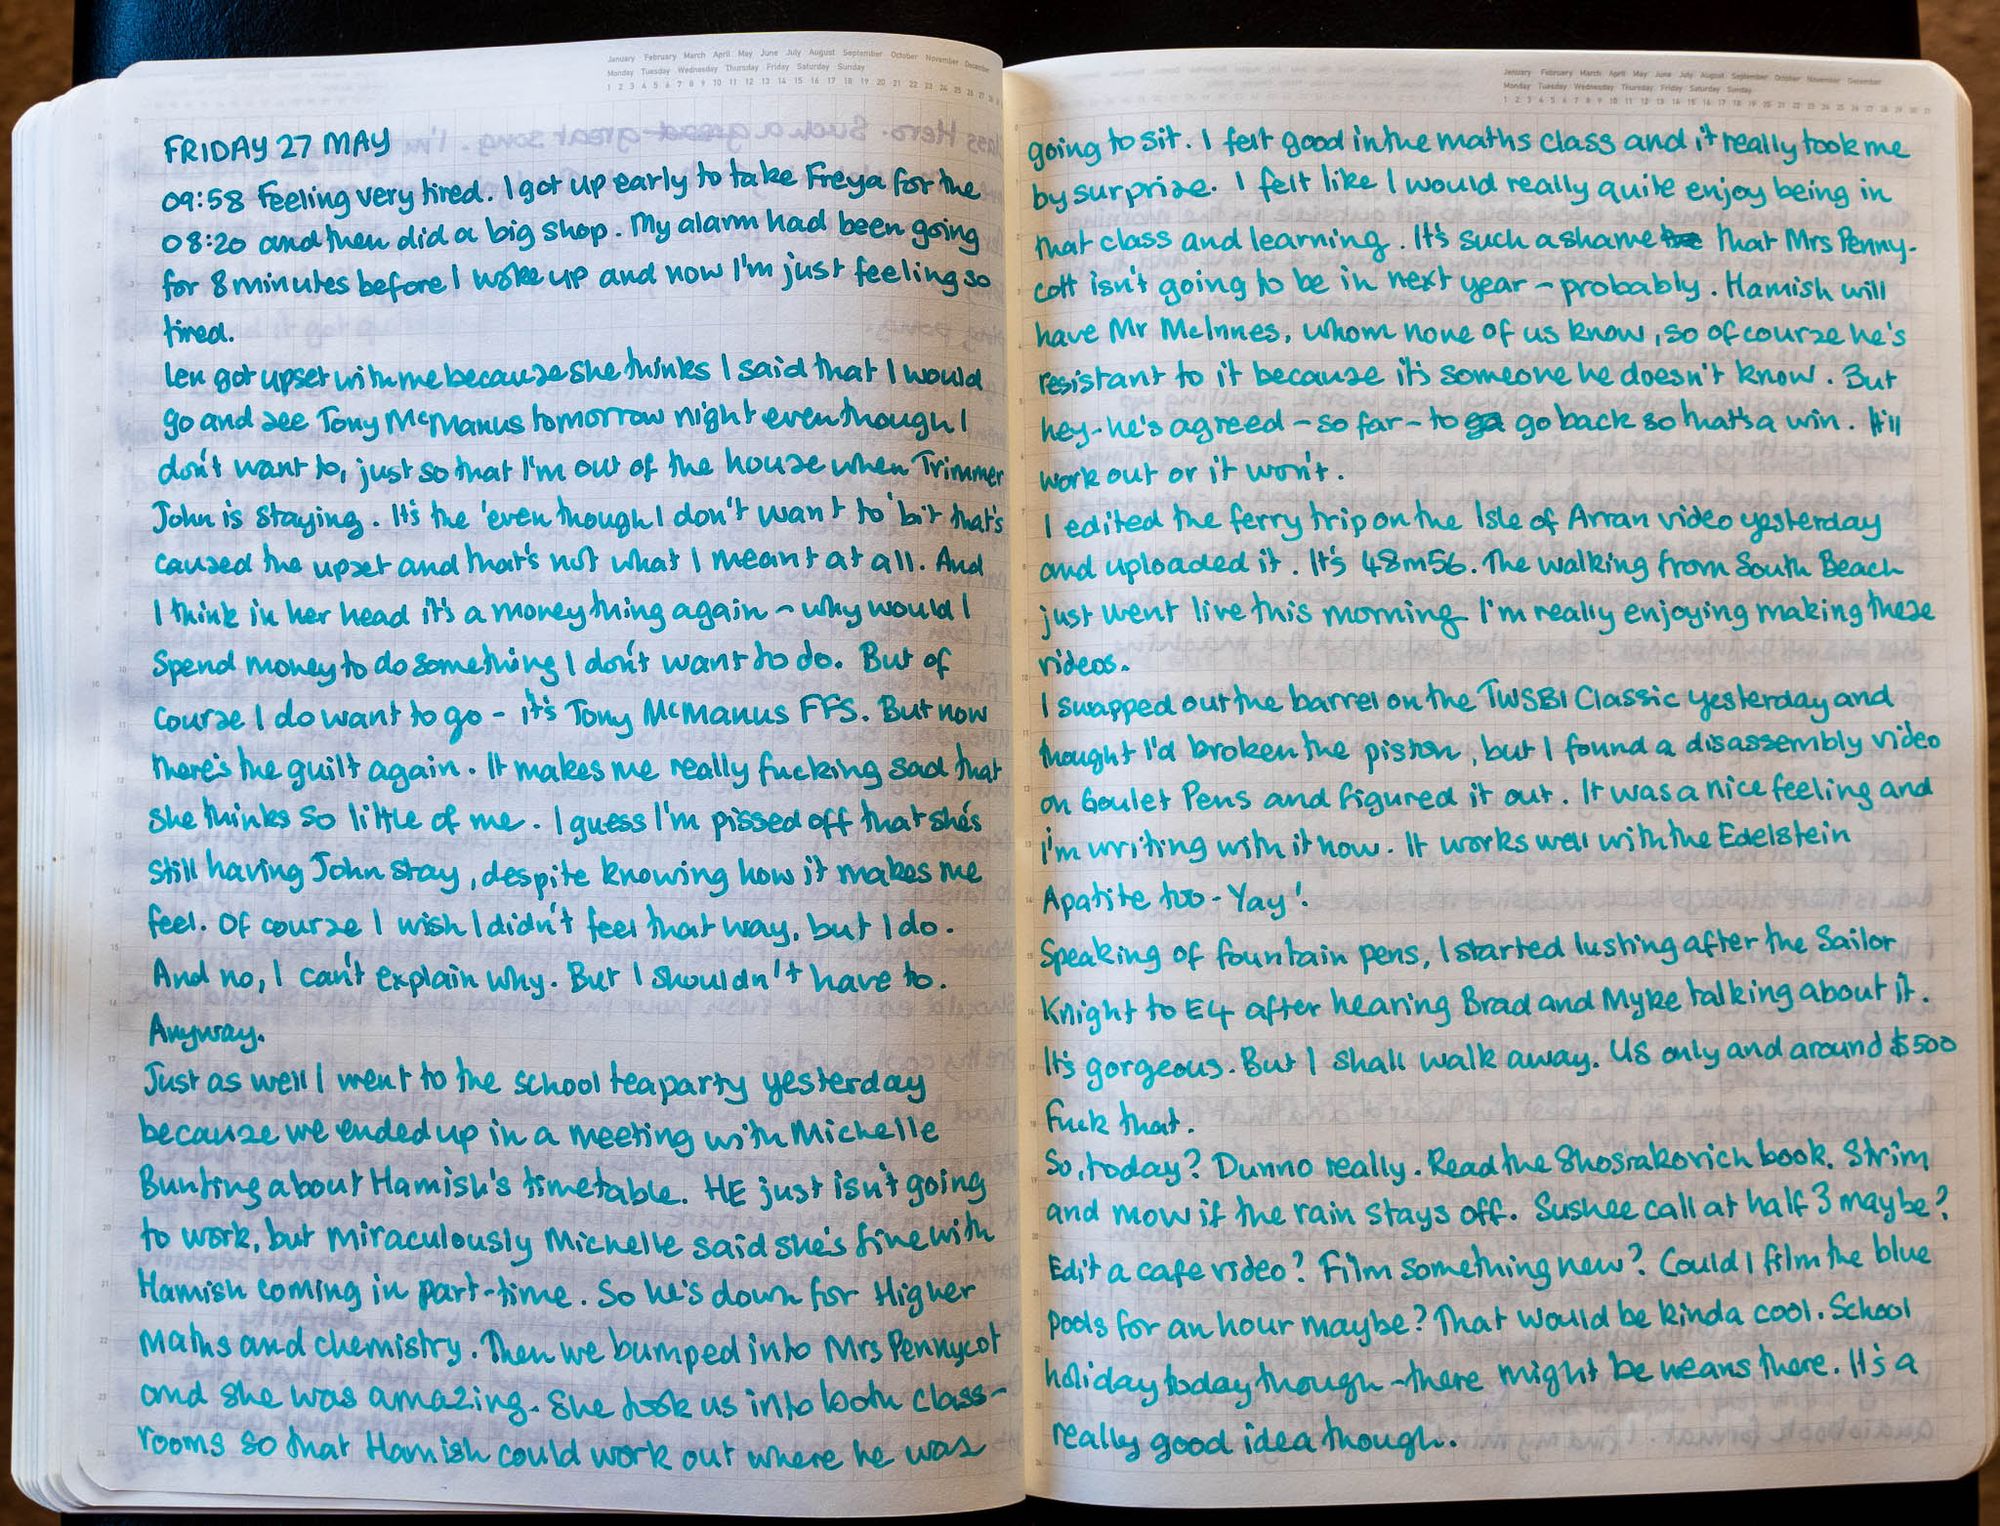 January February March April May June July August September October November December
Monday Tuesday Wednesday Thursday Friday Saturday Sunday
1 2 3 4 5 6 7 8 9 10 11 12 13 14 15 16 17 18 19 20 21 22 23 24 25 26 27 28
FRIDAY 27 MAY
09:58 Feeling very tired. I got up early to take Freya for the
08:20 and then did a big shop. My alarm had been going
for 8 minutes before I woke up and now I'm just feeling so
tired.
Len got upset with me because she thinks I said that I would
go and see Tony McManus tomorrow night even though I
don't want to, just so that I'm out of the house when Trimmer
John is staying. It's the 'even though I don't want to' bit that's
caused the upset and that's not what I meant at all. And
I think in her head it's a money thing again - why would I
spend money to do something I don't want to do. But of
course I do want to go - it's Tony McManus FFS. But now
there's the guilt again. It makes me really fucking sad that
she thinks so little of me. I guess I'm pissed off that she's
still having John stay, despite knowing how it makes me
feel. Of course I wish I didn't feel that way, but I do.
And no, I can't explain why. But I shouldn't have to.
Anyway.
Just as well I went to the school tea party yesterday
because we ended up in a meeting with Michelle
Bunting about Hamish's timetable. HE just isn't going
to work, but miraculously Michelle said she's fine with
Hamish coming in part-time. So he's down for Higher
Maths and chemistry. Then we bumped into Mrs Pennycot
and she was amazing. She took us into both class-
rooms so that Hamish could work out where he was
January February March April May June July August September October November December
Monday Tuesday Wednesday Thursday Friday Saturday Sunday
1 2 3 4 5 6 7 8 9 10 11 12 13 14 15 16 17 18 19 20 21 22 23 24 25 26 27 28 29 30 31
going to sit. I felt good in the maths class and it really took me
by surprise. I felt like I would really quite enjoy being in
that class and learning. It's such a shame that Mrs Penny-
cott isn't going to be in next year - probably. Hamish will
have Mr McInnes, whom none of us know, so of course he's
resistant to it because it's someone he doesn't know. But
hey - he's agreed - so far - to go back so that's a win. It'll
work out or it won't.
I edited the ferry trip on the Isle of Arran video yesterday
and uploaded it. It's 48m56. The walking from South Beach
just went live this morning. I'm really enjoying making these
videos.
I swapped out the barrel on the TWSBI Classic yesterday and
thought I'd broken the piston, but I found a disassembly video
on Goulet Pens and figured it out. It was a nice feeling and
I'm writing with it now. It works well with the Edelstein
Apatite too - Yay!
Speaking of fountain pens, I started lusting after the Sailor
Knight to E4 after hearing Brad and Myke talking about it.
It's gorgeous. But I shall walk away. US only and around $500
Fuck that.
So, today? Dunno really. Read the Shostakovich book. Strim
and mow if the rain stays off. Sushee call at half 3 maybe?
Edit a cafe video? Film something new? Could I film the blue
pools for an hour maybe? That would be kinda cool. School
holiday today though - there might be weans there. It's a
really good idea though.